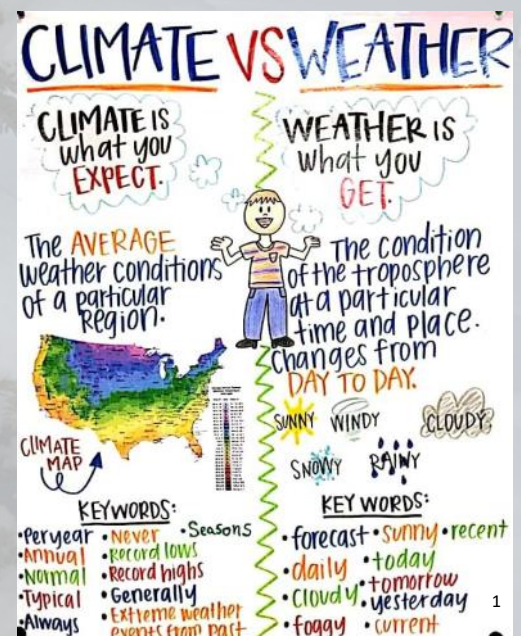 CLIMATE VS WEATHER
CLIMATE IS
what you
EXPECT.
The AVERAGE
weather conditions
of a particular
Region.
CLIMATE
MAP
KEYWORDS:
•Per year
•Annual
•Normal
•Typical
•Always
•Never
•Record lows
•Record highs
•Generally
•Extreme weather
events from past
•Seasons
WEATHER IS
what you
GET.
The condition
of the troposphere
at a particular
time and place.
Changes from
DAY TO DAY.
SUNNY WINDY CLOUDY
SNOWY RAINY
KEY WORDS:
•forecast •sunny •recent
•daily •today
•cloudy •tomorrow
•yesterday
•foggy •current
1